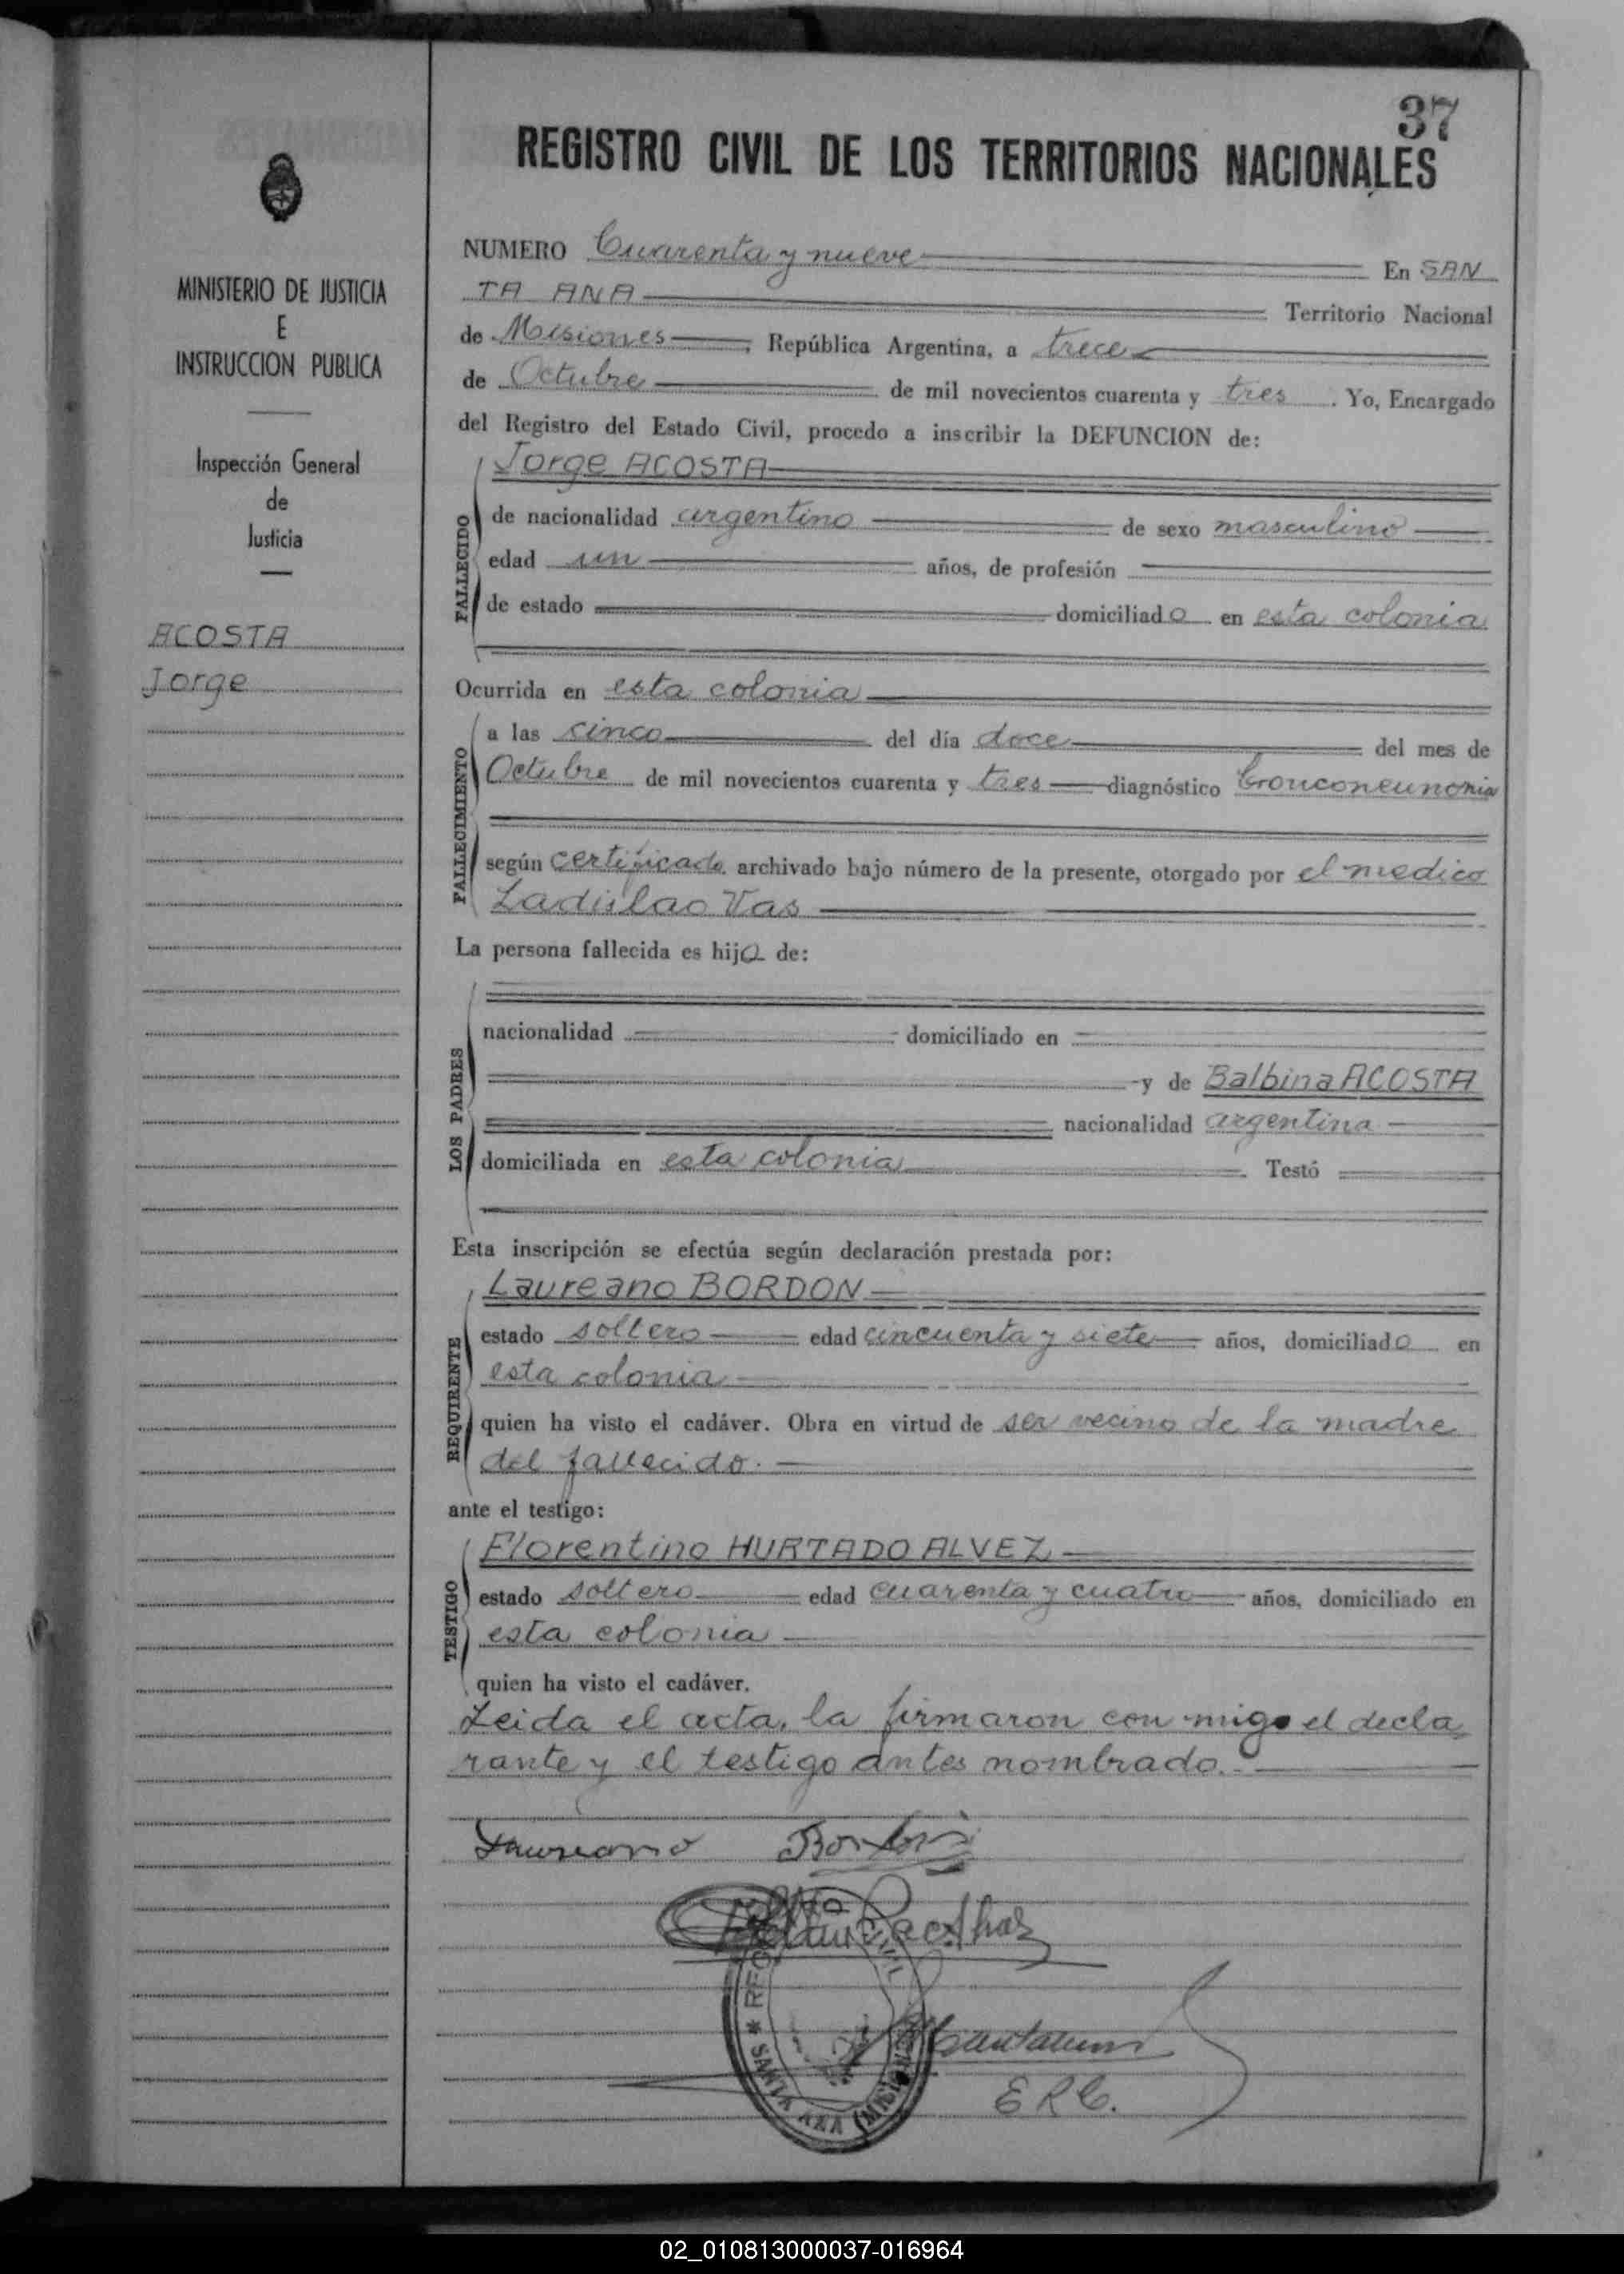 37
REGISTRO CIVIL DE LOS TERRITORIOS NACIONALES
MINISTERIO DE JUSTICIA
E
INSTRUCCION PUBLICA
Inspección General
de
Justicia
ACOSTA
Jorge
NUMERO Cuarenta y nueve En SAN
TA ANA Territorio Nacional
de Misiones, República Argentina, a trece
de Octubre de mil novecientos cuarenta y tres. Yo, Encargado
del Registro del Estado Civil, procedo a inscribir la DEFUNCION de:
FALLECIDO
Jorge ACOSTA
de nacionalidad argentino de sexo masculino
edad un años, de profesión
de estado domiciliado en esta colonia
Ocurrida en esta colonia
FALLECIMIENTO
a las cinco del día doce del mes de
Octubre de mil novecientos cuarenta y tres diagnóstico bronconeunonia
según certificado archivado bajo número de la presente, otorgado por el medico
Ladislao Vas
La persona fallecida es hijo de:
LOS PADRES
nacionalidad domiciliado en
y de Balbina ACOSTA
nacionalidad argentina
domiciliada en esta colonia. Testó
Esta inscripción se efectúa según declaración prestada por:
REQUIRENTE
Laureano BORDON
estado soltero edad cincuenta y siete años, domiciliado en
esta colonia
quien ha visto el cadáver. Obra en virtud de ser vecino de la madre
del fallecido.
ante el testigo:
TESTIGO
Florentino HURTADO ALVEZ
estado soltero edad cuarenta y cuatro años, domiciliado en
esta colonia
quien ha visto el cadáver.
Leida el acta, la firmaron con migo el decla
rante y el testigo antes nombrado.
Laureano Bordon
* SANTA ANA (MISIONES)
E R C.
02_010813000037-016964